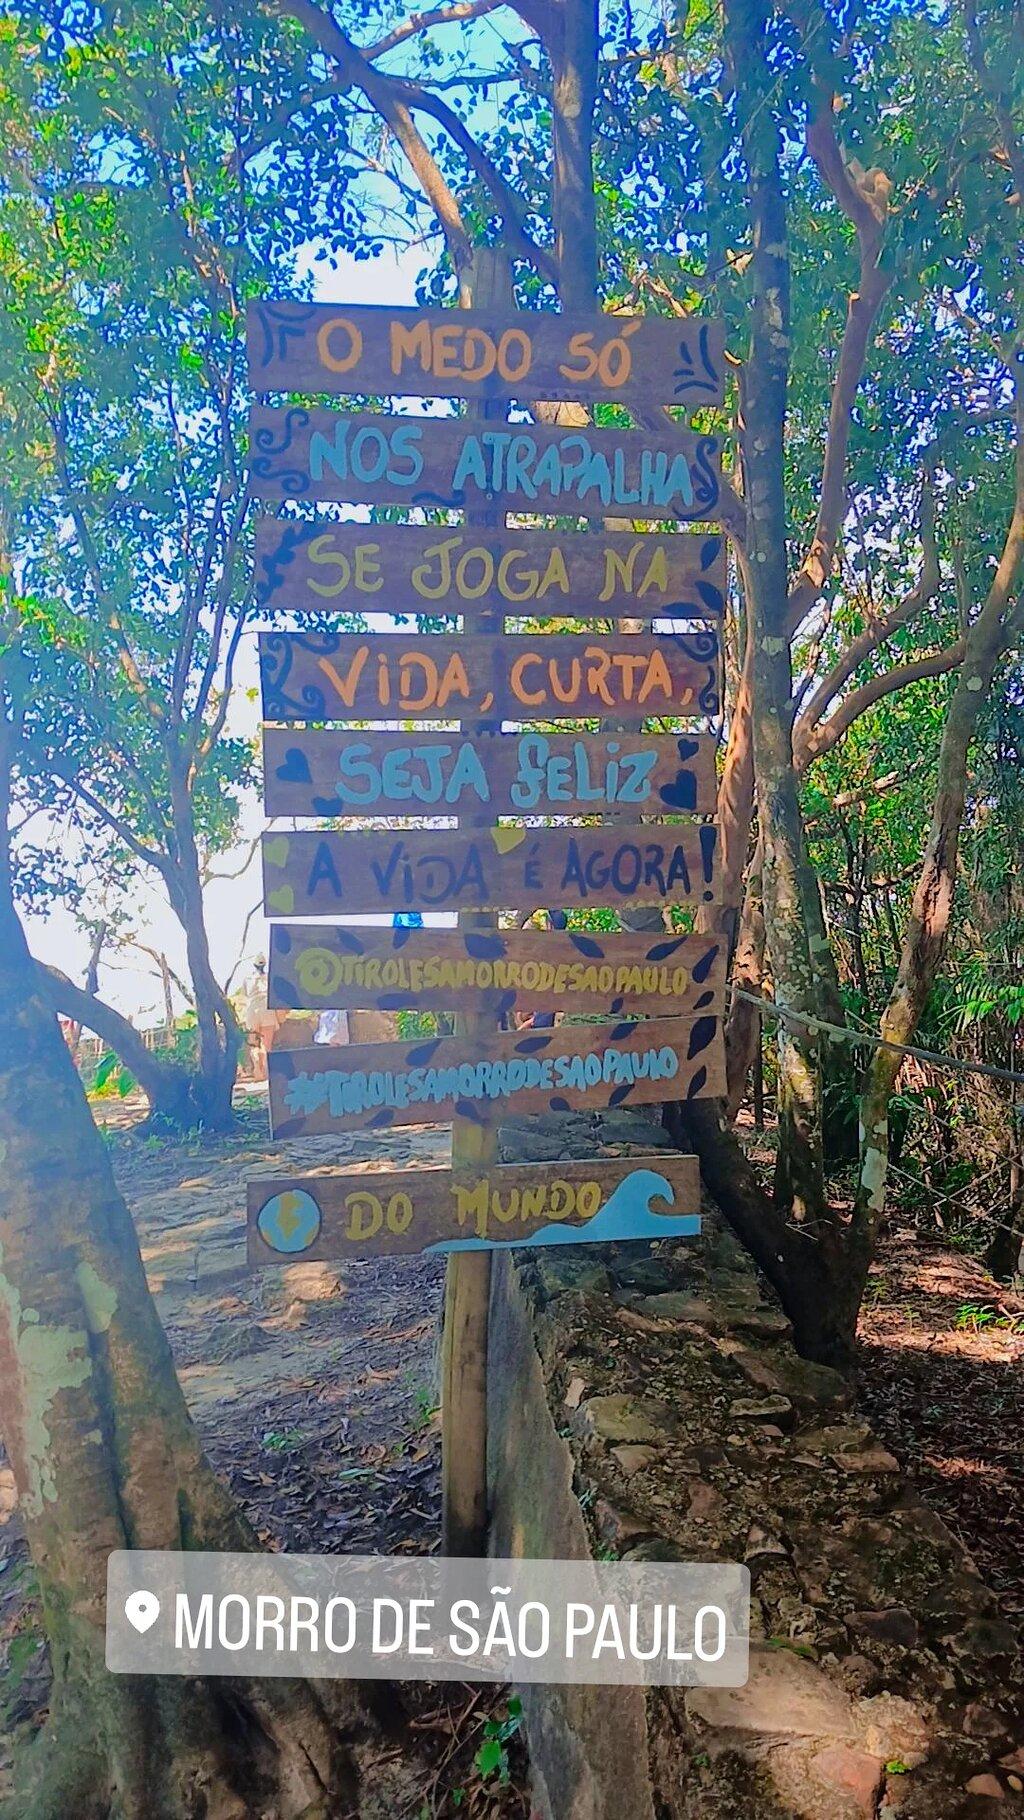 O MEDO SÓ
NOS ATRAPALHA
SE JOGA NA
VIDA, CURTA,
SEJA FELIZ
A VIDA É AGORA!
@TIROLESAMORRODESAOPAULO
#TIROLESAMORRODESAOPAULO
DO MUNDO
MORRO DE SÃO PAULO